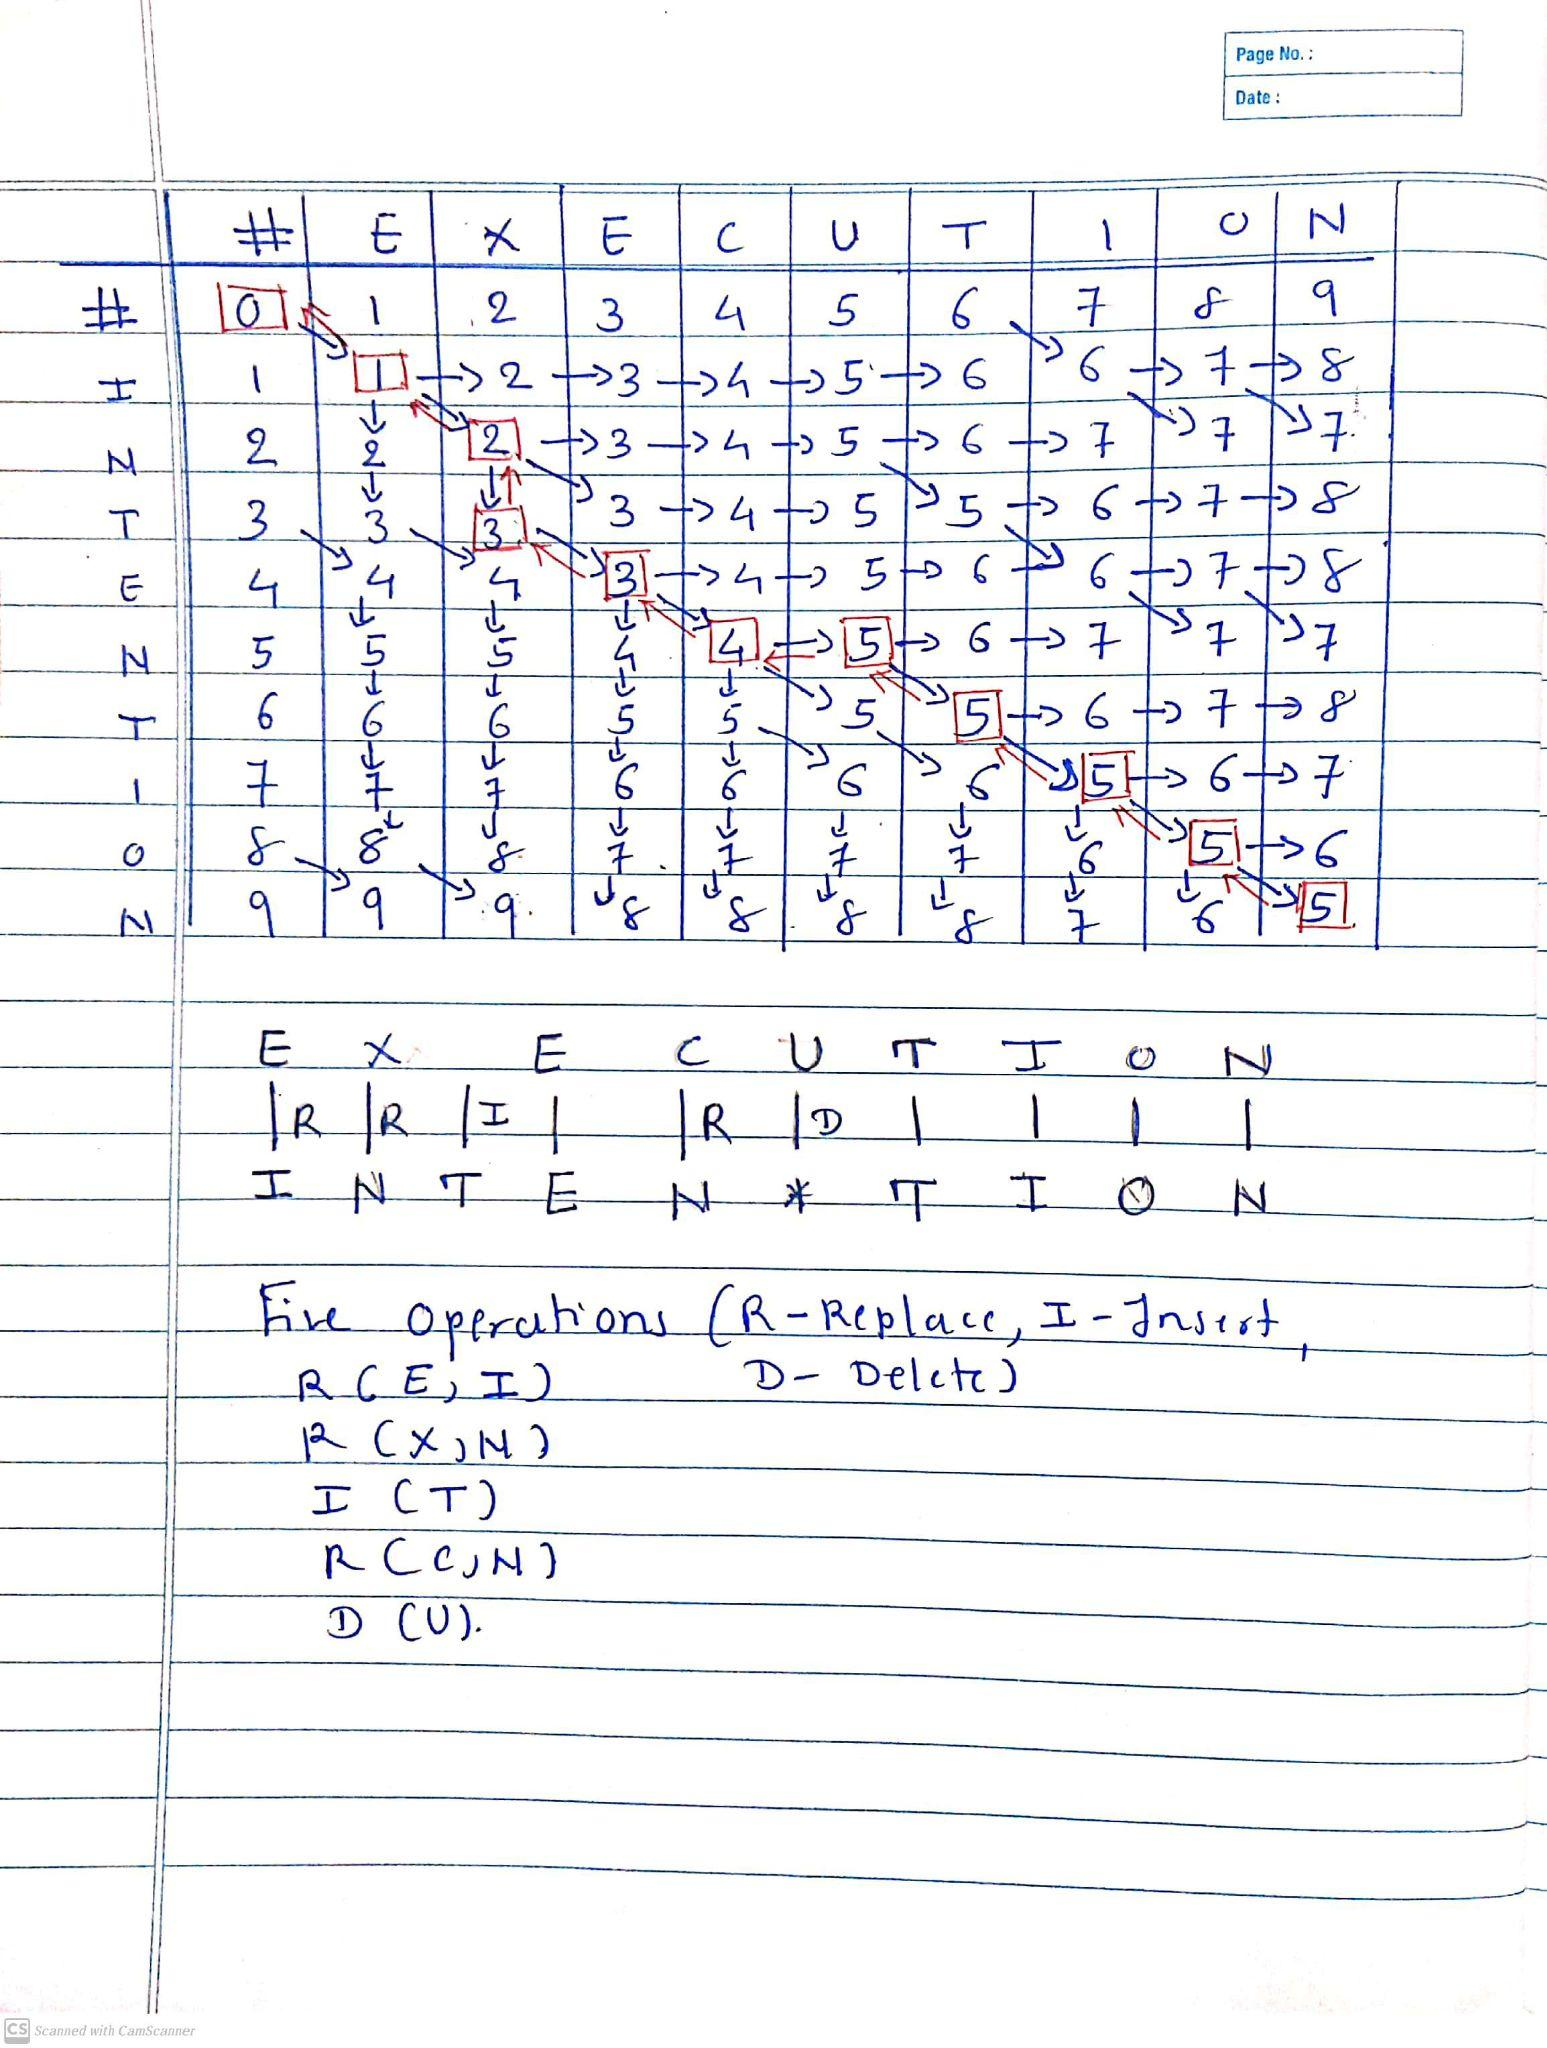 Page No. :
Date :
# E X E C U T I O N
# 0 1 2 3 4 5 6 7 8 9
I 1 1 → 2 → 3 → 4 → 5 → 6 6 → 7 → 8
N 2 2 2 → 3 → 4 → 5 → 6 → 7 7 7
T 3 3 3 3 → 4 → 5 5 → 6 → 7 → 8
E 4 4 4 3 → 4 → 5 → 6 → 6 → 7 → 8
N 5 5 5 4 4 → 5 → 6 → 7 7 7
T 6 6 6 5 5 5 5 → 6 → 7 → 8
I 7 7 7 6 6 6 6 5 → 6 → 7
O 8 8 8 7 7 7 7 6 5 → 6
N 9 9 9 8 8 8 8 7 6 5
E X E C U T I O N
|R |R |I | |R |D | | | |
I N T E N * T I O N
Five operations (R - Replace, I - Insert,
R (E, I) D - Delete)
R (X, N)
I (T)
R (C, N)
D (U).
CS Scanned with CamScanner